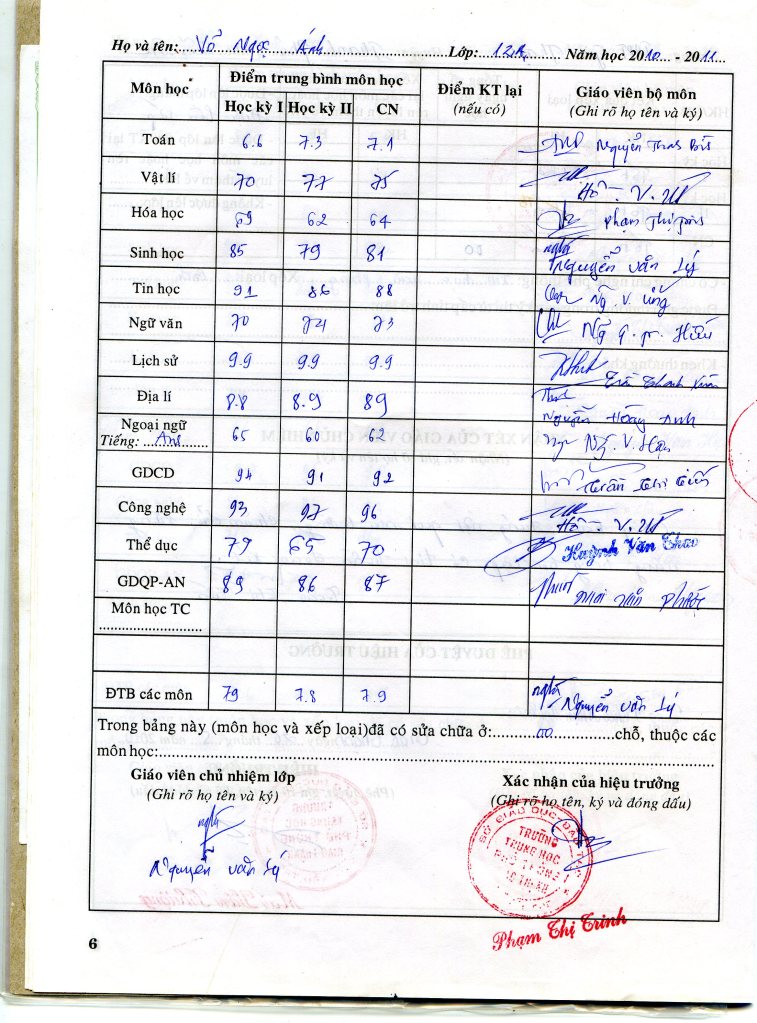 Họ và tên: Võ Ngọc Ánh Lớp: 12A Năm học 2010 - 2011
Môn học Điểm trung bình môn học Điểm KT lại (nếu có) Giáo viên bộ môn (Ghi rõ họ tên và ký)
Học kỳ I Học kỳ II CN
Toán 6.6 7.3 7.1 Nguyễn
Vật lí 70 77 75 Hồ V.
Hóa học 69 62 64 Phạm Thị
Sinh học 85 79 81 Nguyễn Văn Lý
Tin học 91 86 88 Ng V.
Ngữ văn 70 74 73 Hiếu
Lịch sử 9.9 9.9 9.9 Trần Thanh Xuân
Địa lí 8.8 8.9 89 Nguyễn Hoàng Anh
Ngoại ngữ
Tiếng: Anh 65 60 62 Ng. V. Hậu
GDCD 94 91 92 Trần Thị
Công nghệ 93 97 96 Hồ V.
Thể dục 79 65 70 Huỳnh Văn Thảo
GDQP-AN 89 86 87 Mai Văn Phước
Môn học TC
ĐTB các môn 79 7.8 7.9 Nguyễn Văn Lý
Trong bảng này (môn học và xếp loại)đã có sửa chữa ở: 00 chỗ, thuộc các
môn học:
Giáo viên chủ nhiệm lớp Xác nhận của hiệu trưởng
(Ghi rõ họ tên và ký) (Ghi rõ họ tên, ký và đóng dấu)
SỞ GIÁO DỤC
TRƯỜNG
TRUNG HỌC
Nguyễn Văn Lý
Phạm Thị Trinh
6